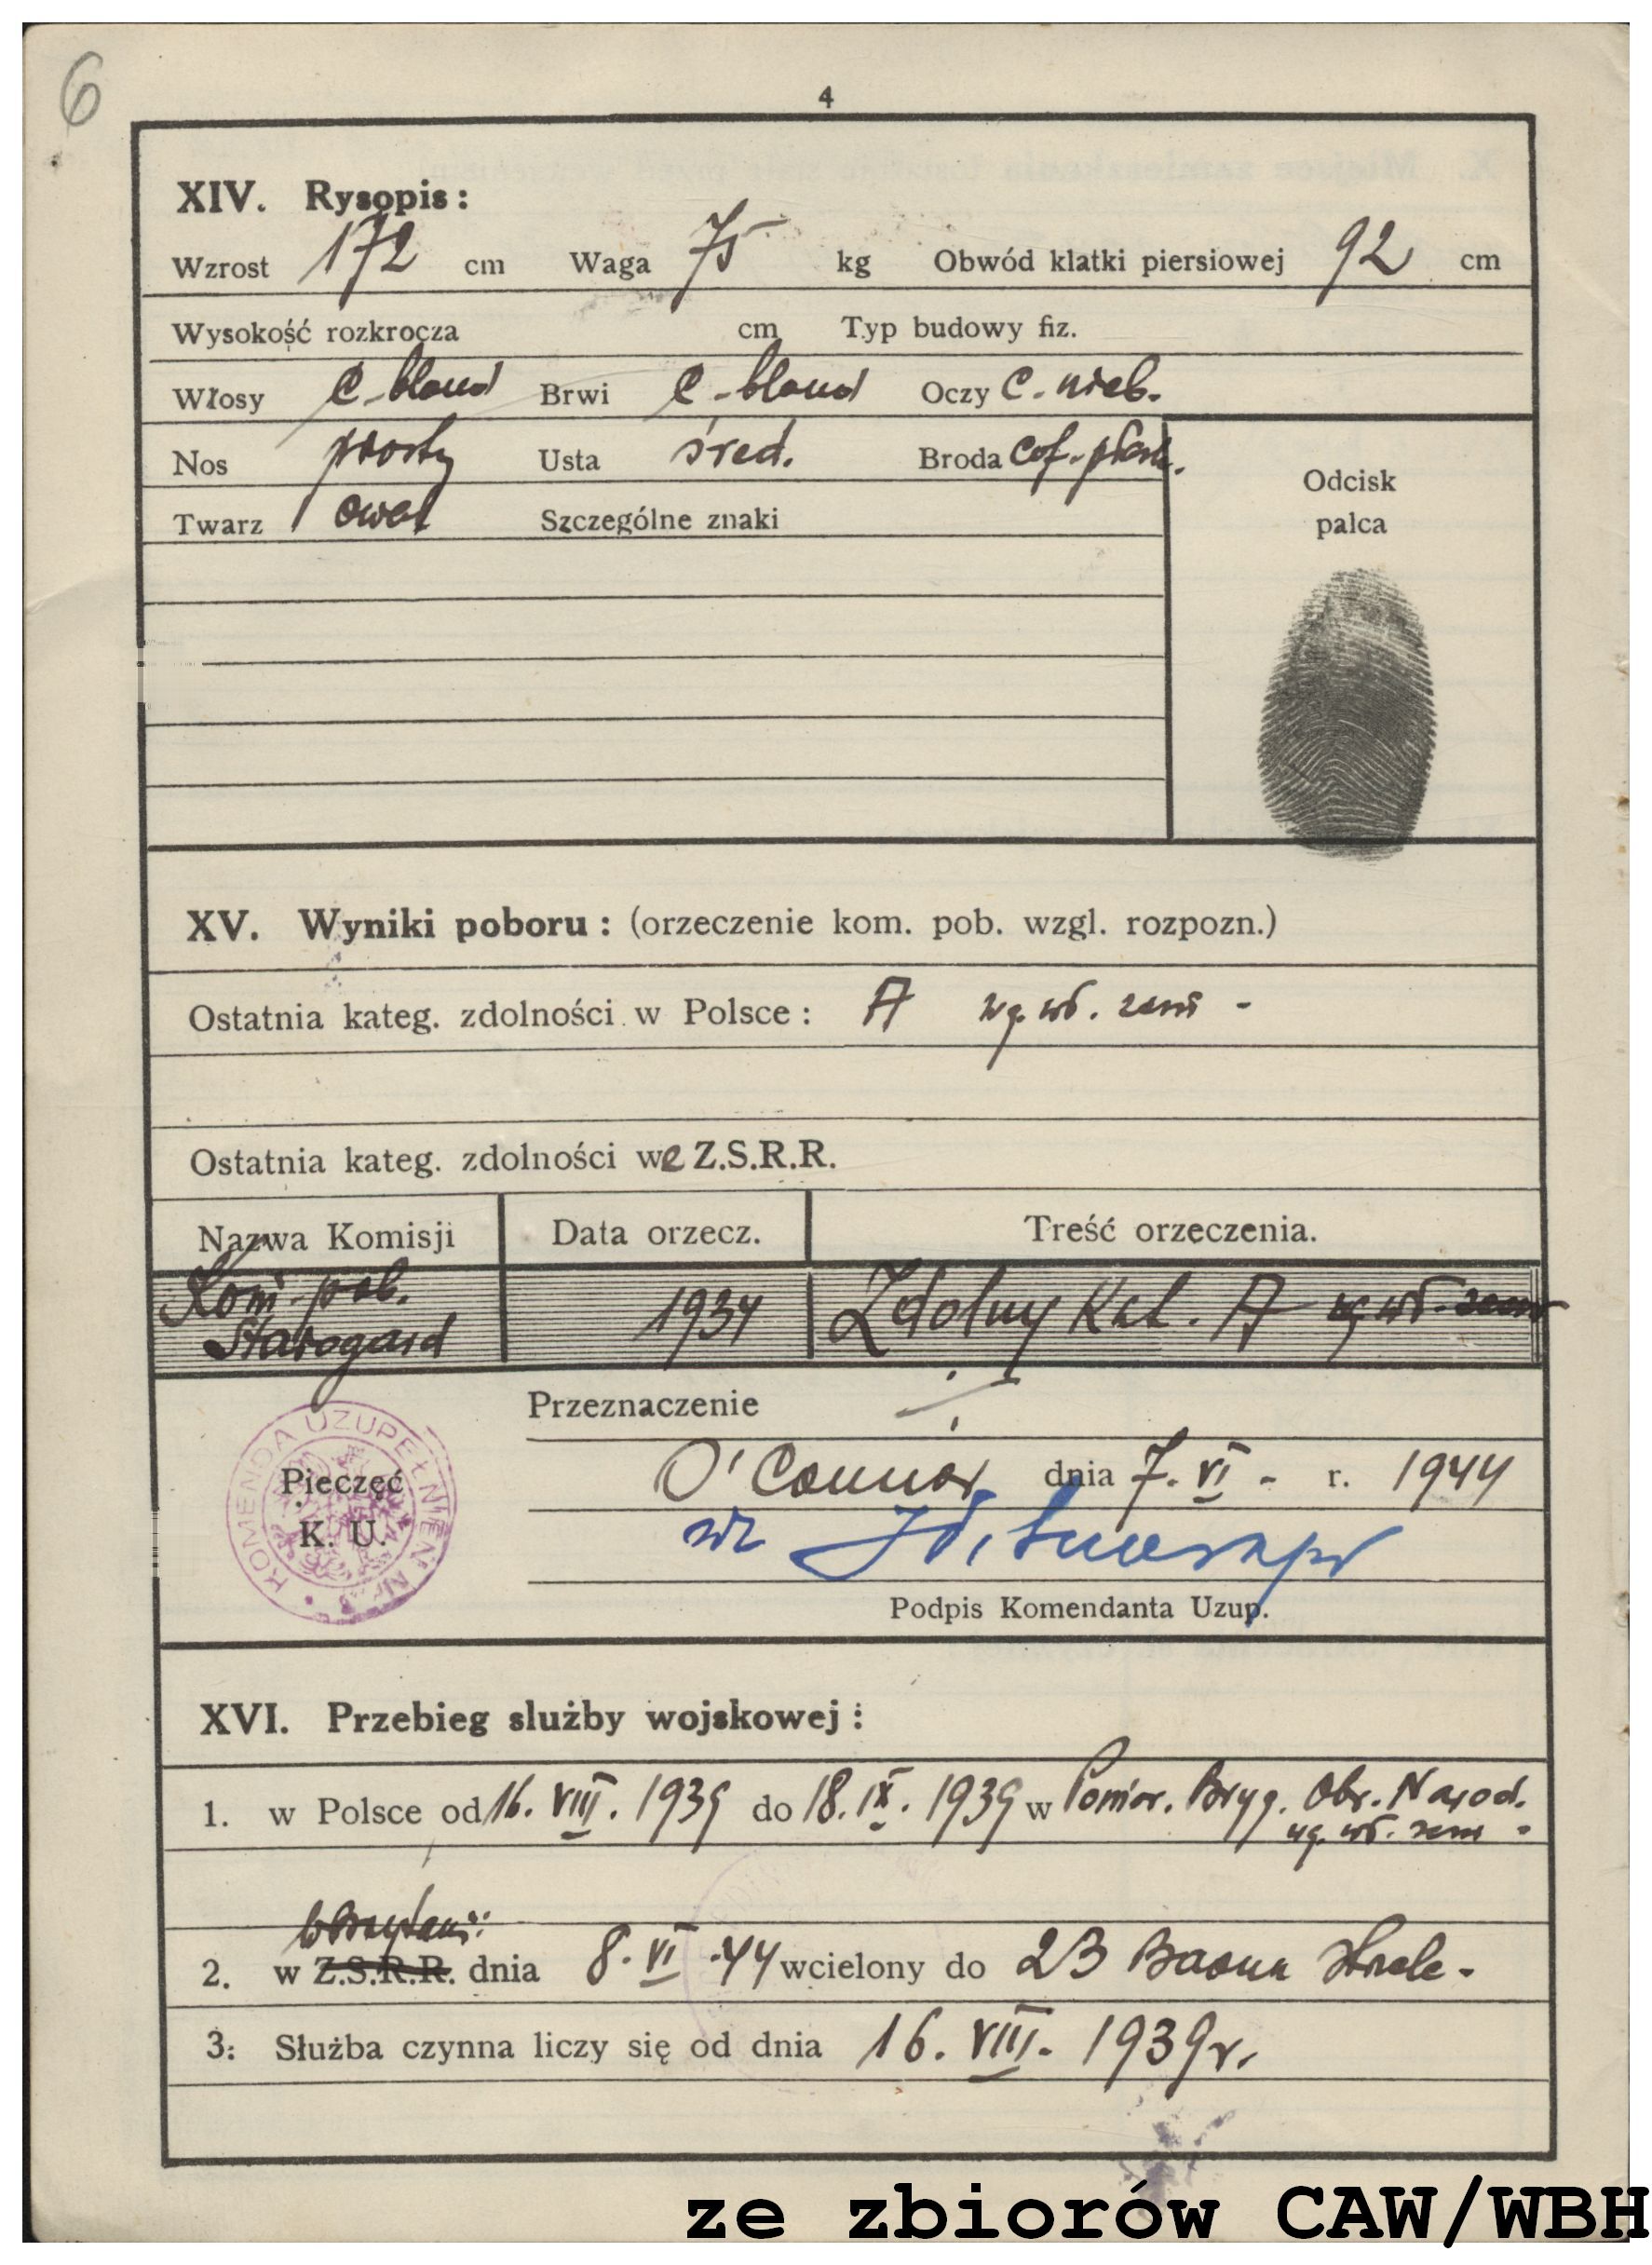 6
4
XIV. Rysopis:
Wzrost 172 cm Waga 75 kg Obwód klatki piersiowej 92 cm
Wysokość rozkrocza cm Typ budowy fiz.
Włosy c-blond Brwi c-blond Oczy c. nieb.
Nos prosty Usta śred. Broda cof.
Twarz owal Szczególne znaki
Odcisk
palca
XV. Wyniki poboru: (orzeczenie kom. pob. wzgl. rozpozn.)
Ostatnia kateg. zdolności w Polsce: A wg. wł. zezn -
Ostatnia kateg. zdolności we Z.S.R.R.
Nazwa Komisji Data orzecz. Treść orzeczenia.
Kom. pob.
Starogard 1934 Zdolny Kat. A wg wł. zezn
Przeznaczenie
O'Connor dnia 7. VI - r. 1944
Pieczęć
K. U.
KOMENDA UZUPEŁNIEŃ Nr. 3
wz
Podpis Komendanta Uzup.
XVI. Przebieg służby wojskowej:
1. w Polsce od 16. VIII. 1939 do 18. IX. 1939 w Pomor. Bryg. Obr. Narod.
wg. wł. zezn -
w Brytanii
2. w Z.S.R.R. dnia 8. VI .44 wcielony do 23 Baonu Strzelc.
3. Służba czynna liczy się od dnia 16. VIII. 1939 r.
ze zbiorów CAW/WBH